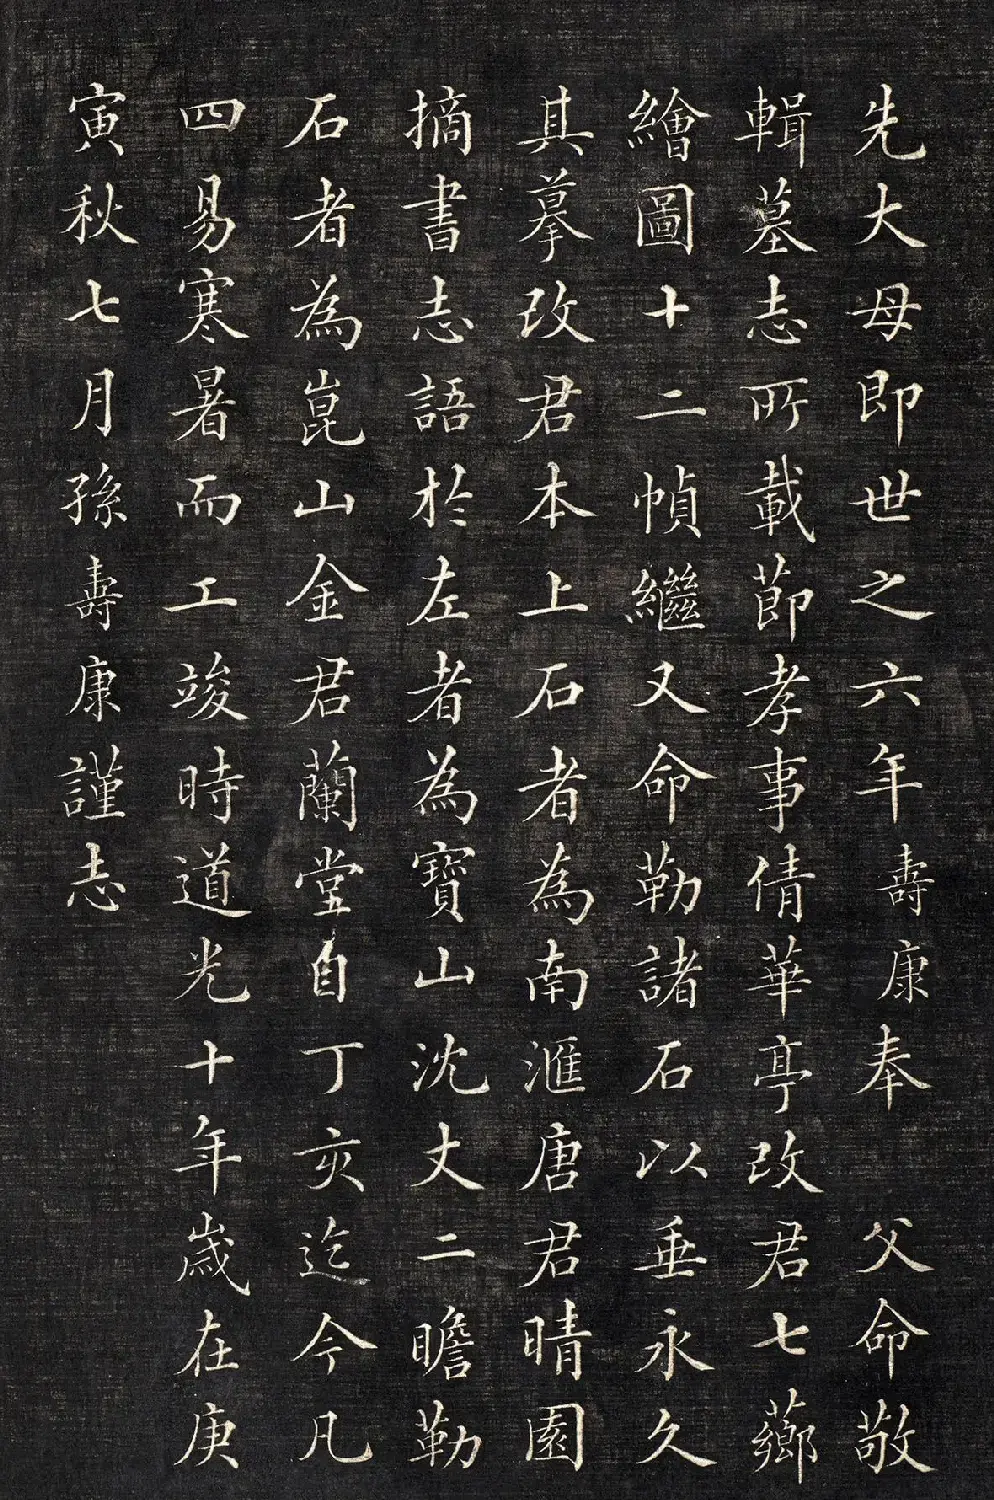 先大母即世之六年壽康奉 父命敬
輯墓志所載節孝事倩華亭改君七薌
繪圖十二幀繼又命勒諸石以垂永久
其摹改君本上石者為南滙唐君晴園
摘書志語於左者為寶山沈丈二瞻勒
石者為崑山金君蘭堂自丁亥迄今凡
四易寒暑而工竣時道光十年歲在庚
寅秋七月孫壽康謹志